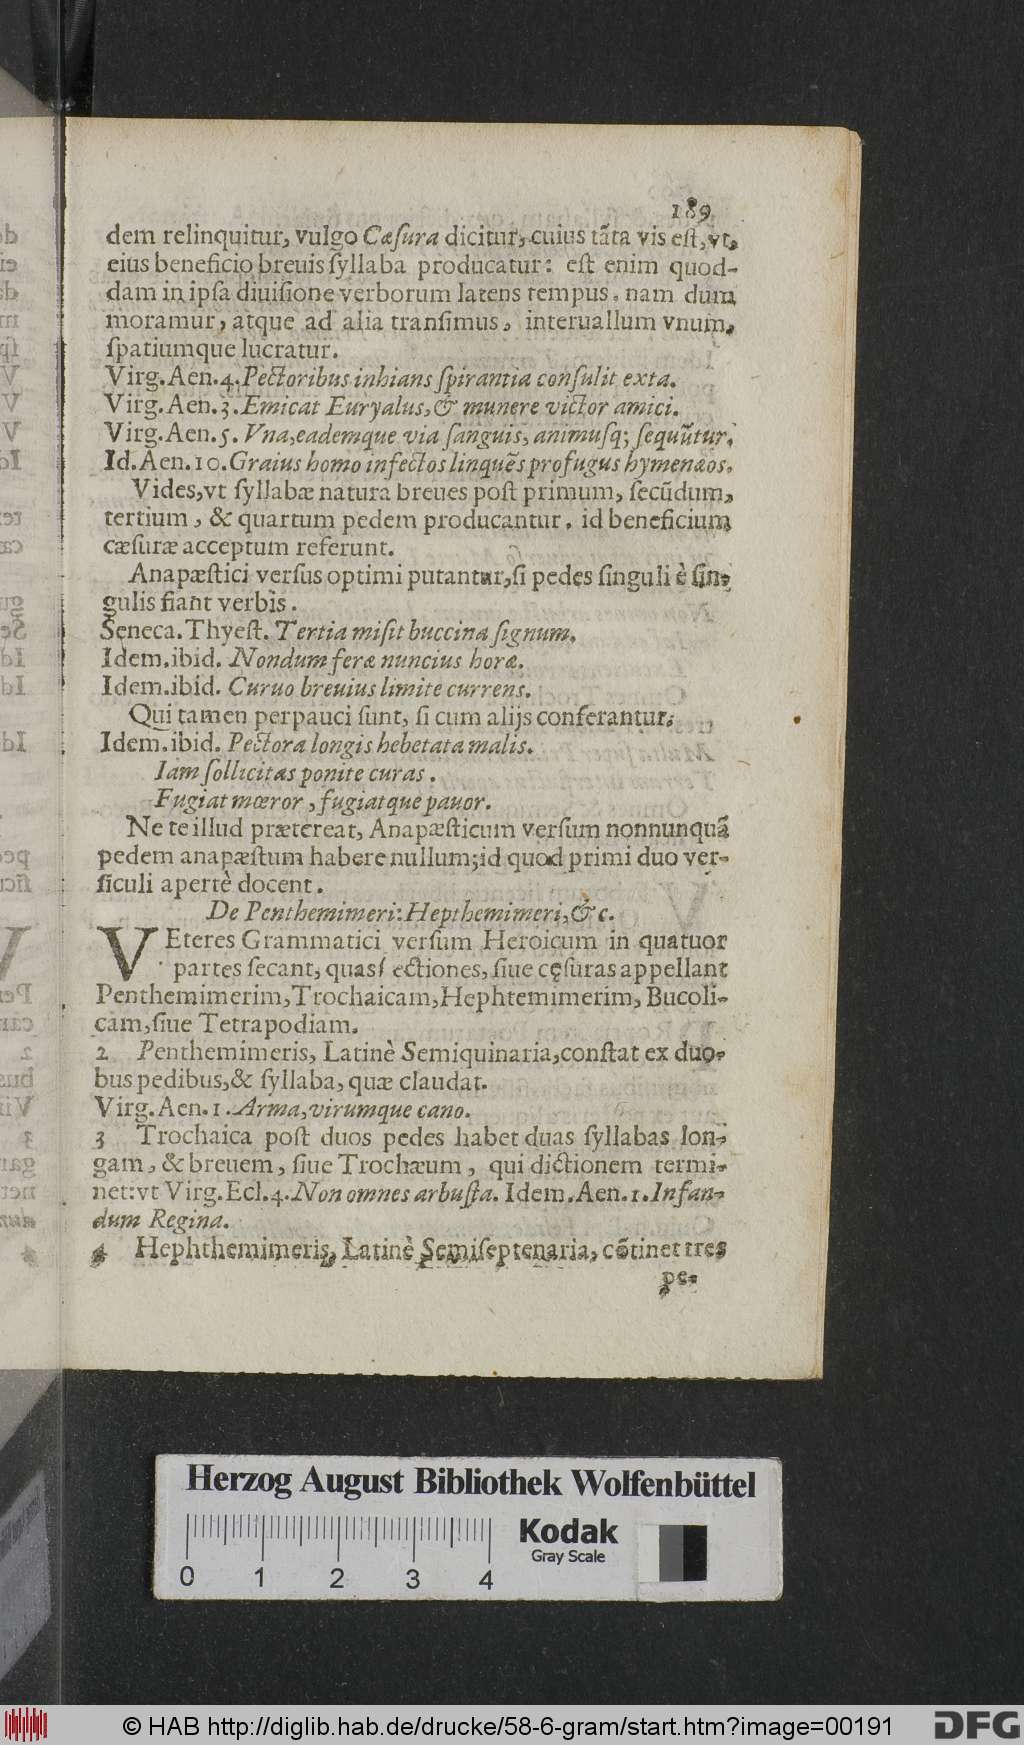 189
dem relinquitur, vulgo Cæſura dicitur, cuius tãta vis eſt, vt,
eius beneficio breuis ſyllaba producatur: eſt enim quod-
dam in ipſa diuiſione verborum latens tempus. nam dum
moramur, atque ad alia tranſimus, interuallum vnum,
ſpatiumque lucratur.
Virg. Aen. 4. Pectoribus inhians ſpirantia conſulit exta.
Virg. Aen. 3. Emicat Euryalus, & munere victor amici.
Virg. Aen. 5. Vna, eademque via ſanguis, animuſq; ſequũtur.
Id. Aen. 10. Graius homo infectos linquẽs profugus hymenæos.
Vides, vt ſyllabæ natura breues poſt primum, ſecũdum,
tertium, & quartum pedem producantur. id beneficium
cæſuræ acceptum referunt.
Anapæſtici verſus optimi putantur, ſi pedes ſinguli è ſin-
gulis fiant verbis.
Seneca. Thyeſt. Tertia miſit buccina ſignum.
Idem. ibid. Nondum feræ nuncius horæ.
Idem. ibid. Curuo breuius limite currens.
Qui tamen perpauci ſunt, ſi cum alijs conferantur.
Idem. ibid. Pectora longis hebetata malis.
Iam ſollicitas ponite curas.
Fugiat mœror, fugiatque pauor.
Ne te illud prætereat, Anapæſticum verſum nonnunquã
pedem anapæſtum habere nullum; id quod primi duo ver-
ſiculi apertè docent.
De Penthemimeri: Hepthemimeri, & c.
VEteres Grammatici verſum Heroicum in quatuor
partes ſecant, quas ſectiones, ſiue cęſuras appellant
Penthemimerim, Trochaicam, Hephtemimerim, Bucoli-
cam, ſiue Tetrapodiam.
2 Penthemimeris, Latinè Semiquinaria, conſtat ex duo-
bus pedibus, & ſyllaba, quæ claudat.
Virg. Aen. 1. Arma, virumque cano.
3 Trochaica poſt duos pedes habet duas ſyllabas lon-
gam, & breuem, ſiue Trochæum, qui dictionem termi-
net: vt Virg. Ecl. 4. Non omnes arbuſta. Idem. Aen. 1. Infan-
dum Regina.
4 Hephthemimeris, Latinè Semiſeptenaria, cõtinet tres
pe-
Herzog August Bibliothek Wolfenbüttel
Kodak
Gray Scale
0 1 2 3 4
© HAB http://diglib.hab.de/drucke/58-6-gram/start.htm?image=00191
DFG